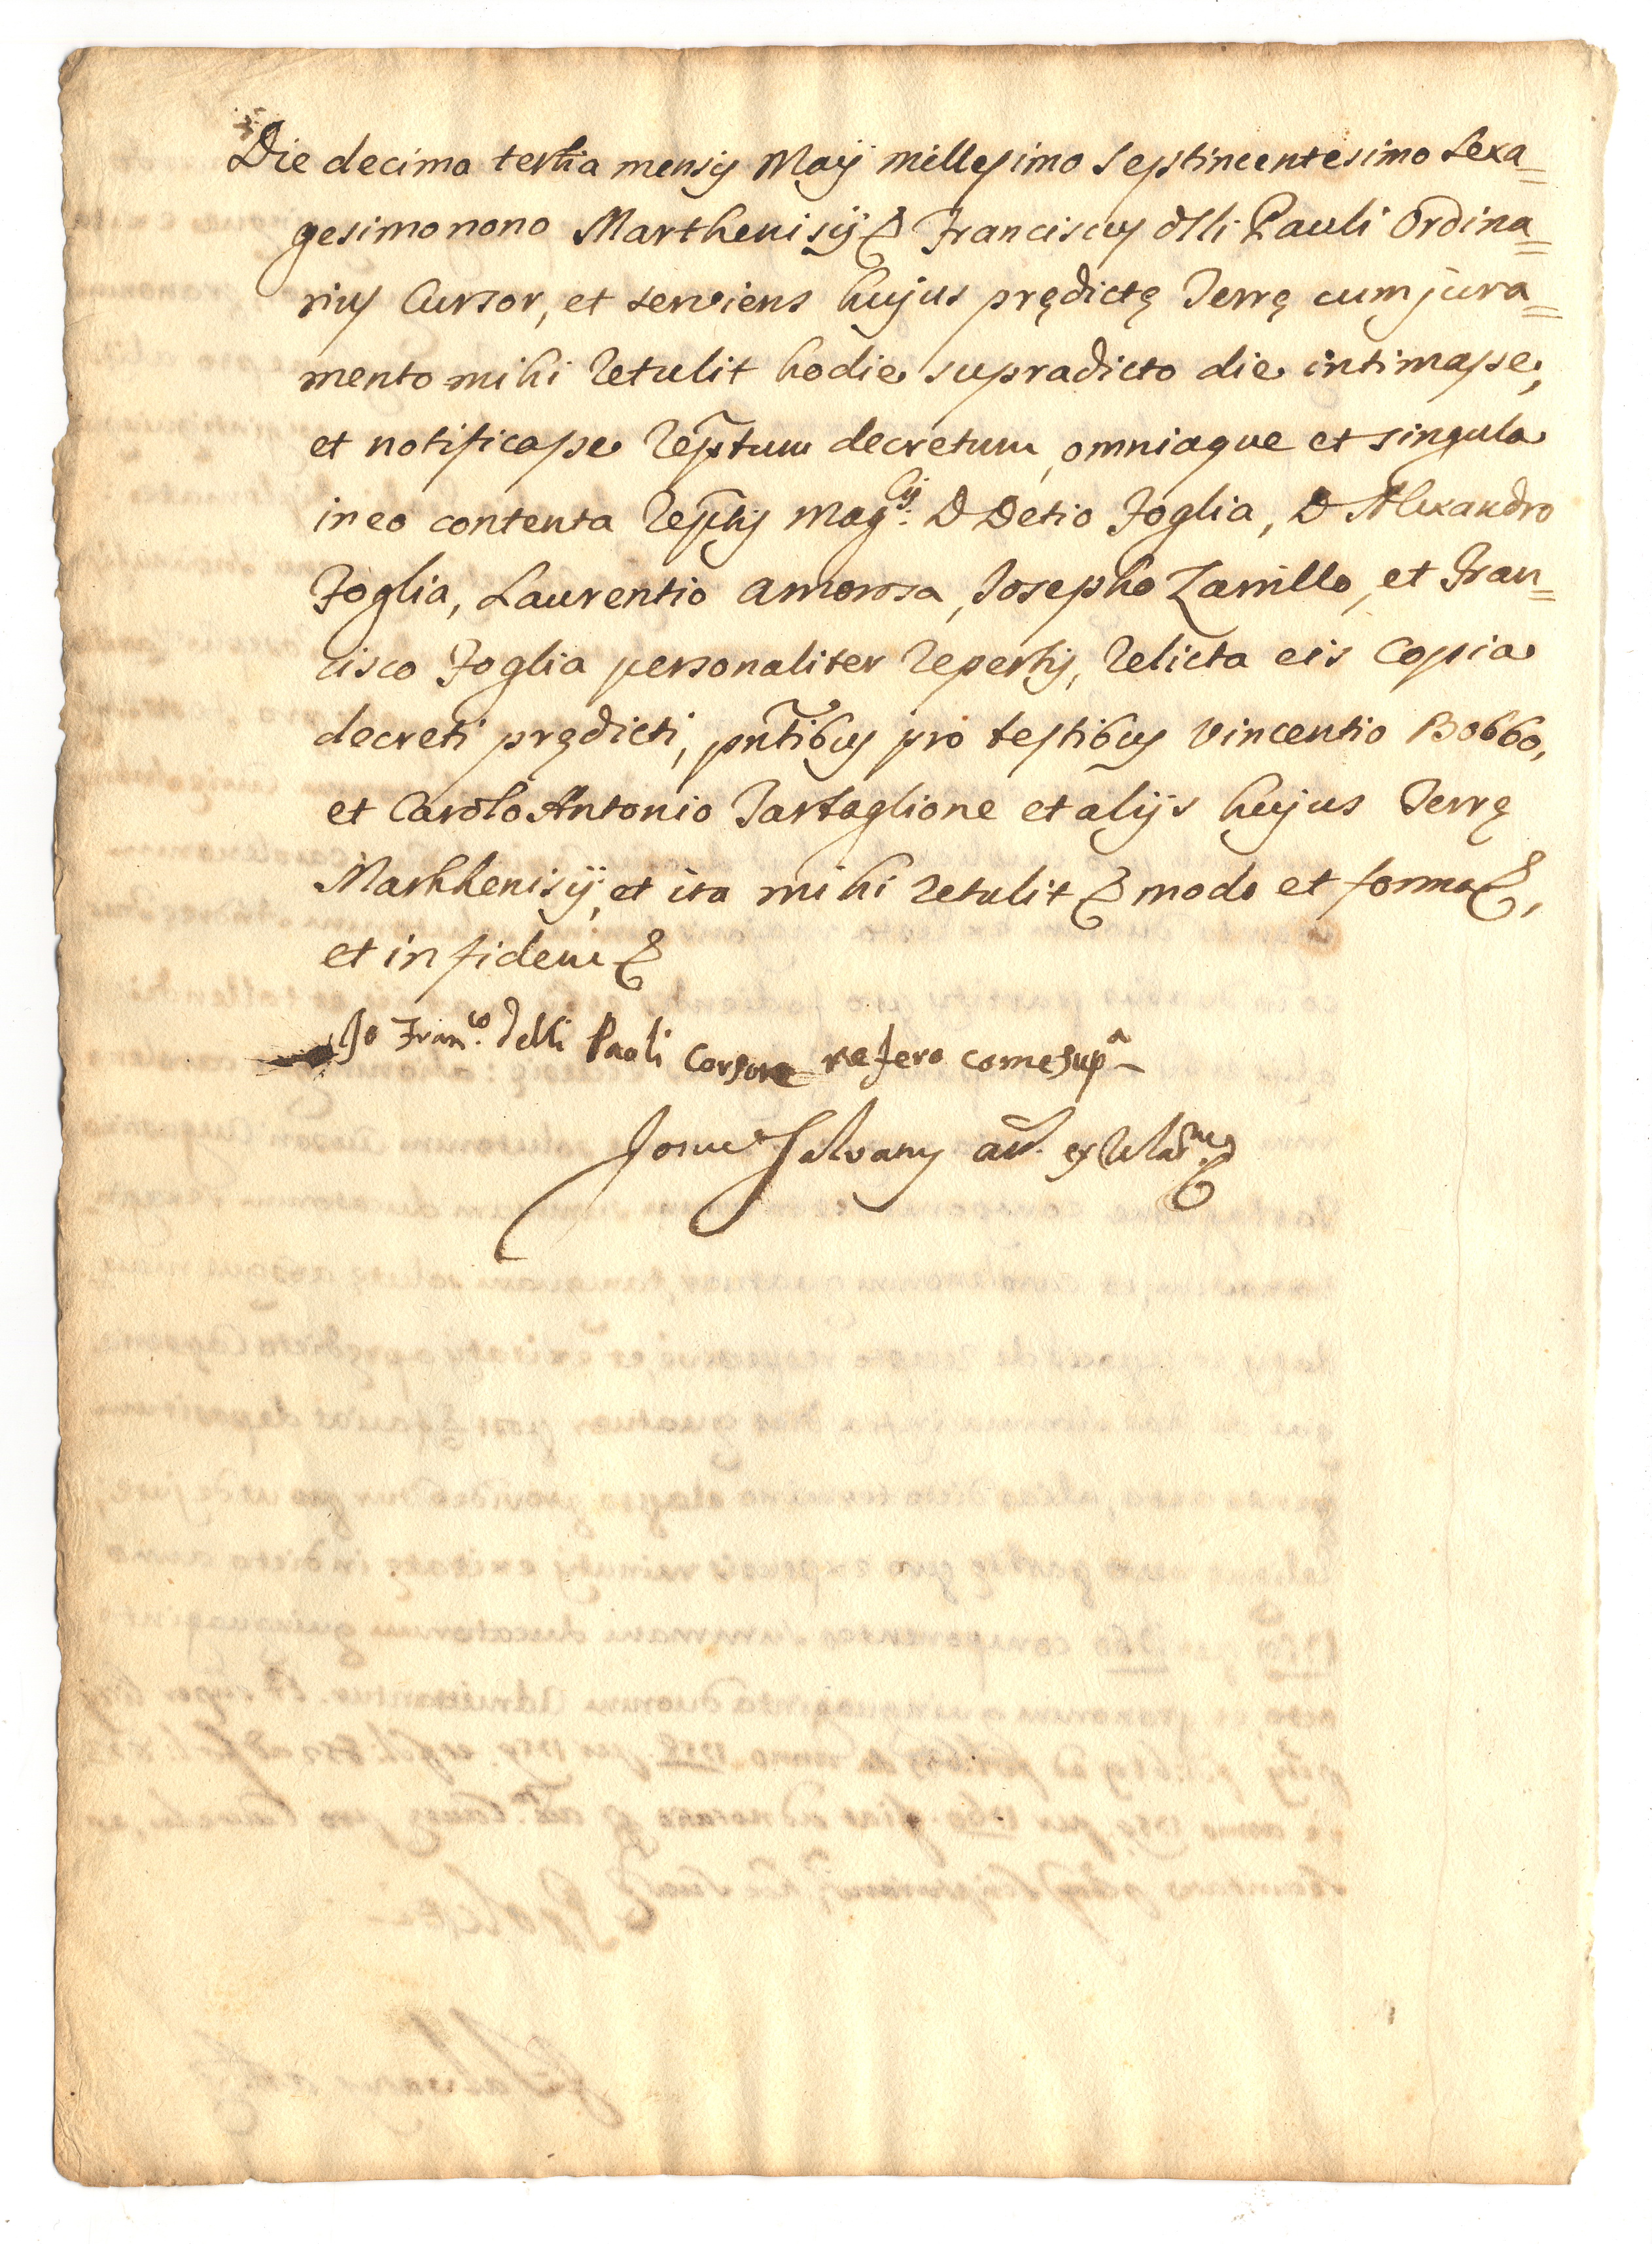 Die decima tertia mensis Maij millesimo septincentesimo sexa=
gesimo nono Marthenisij & Franciscus delli Pauli Ordina=
rius Cursor, et serviens hujus prędictę Terrę cum jura=
mento mihi retulit hodie supradicto die intimasse,
et notificasse rẽptum decretum, omniaque et singula
in eo contenta rẽptis mag.cis D Detio Foglia, D Alexandro
Foglia, Laurentio Amorosa, Josepho Zarrillo, et Fran=
cisco Foglia personaliter repertis, relicta eis Copia
decreti prędicti, pñtibus pro testibus Vincentio Bobbo,
et Carolo Antonio Tartaglione et alijs hujus Terrę
Marthenisij, et ita mihi retulit & modo et forma &,
et in fidem &
Io Fran.co delli Paoli Corsore refero come sup.a
Josue Salvany act. ex relat.ne &